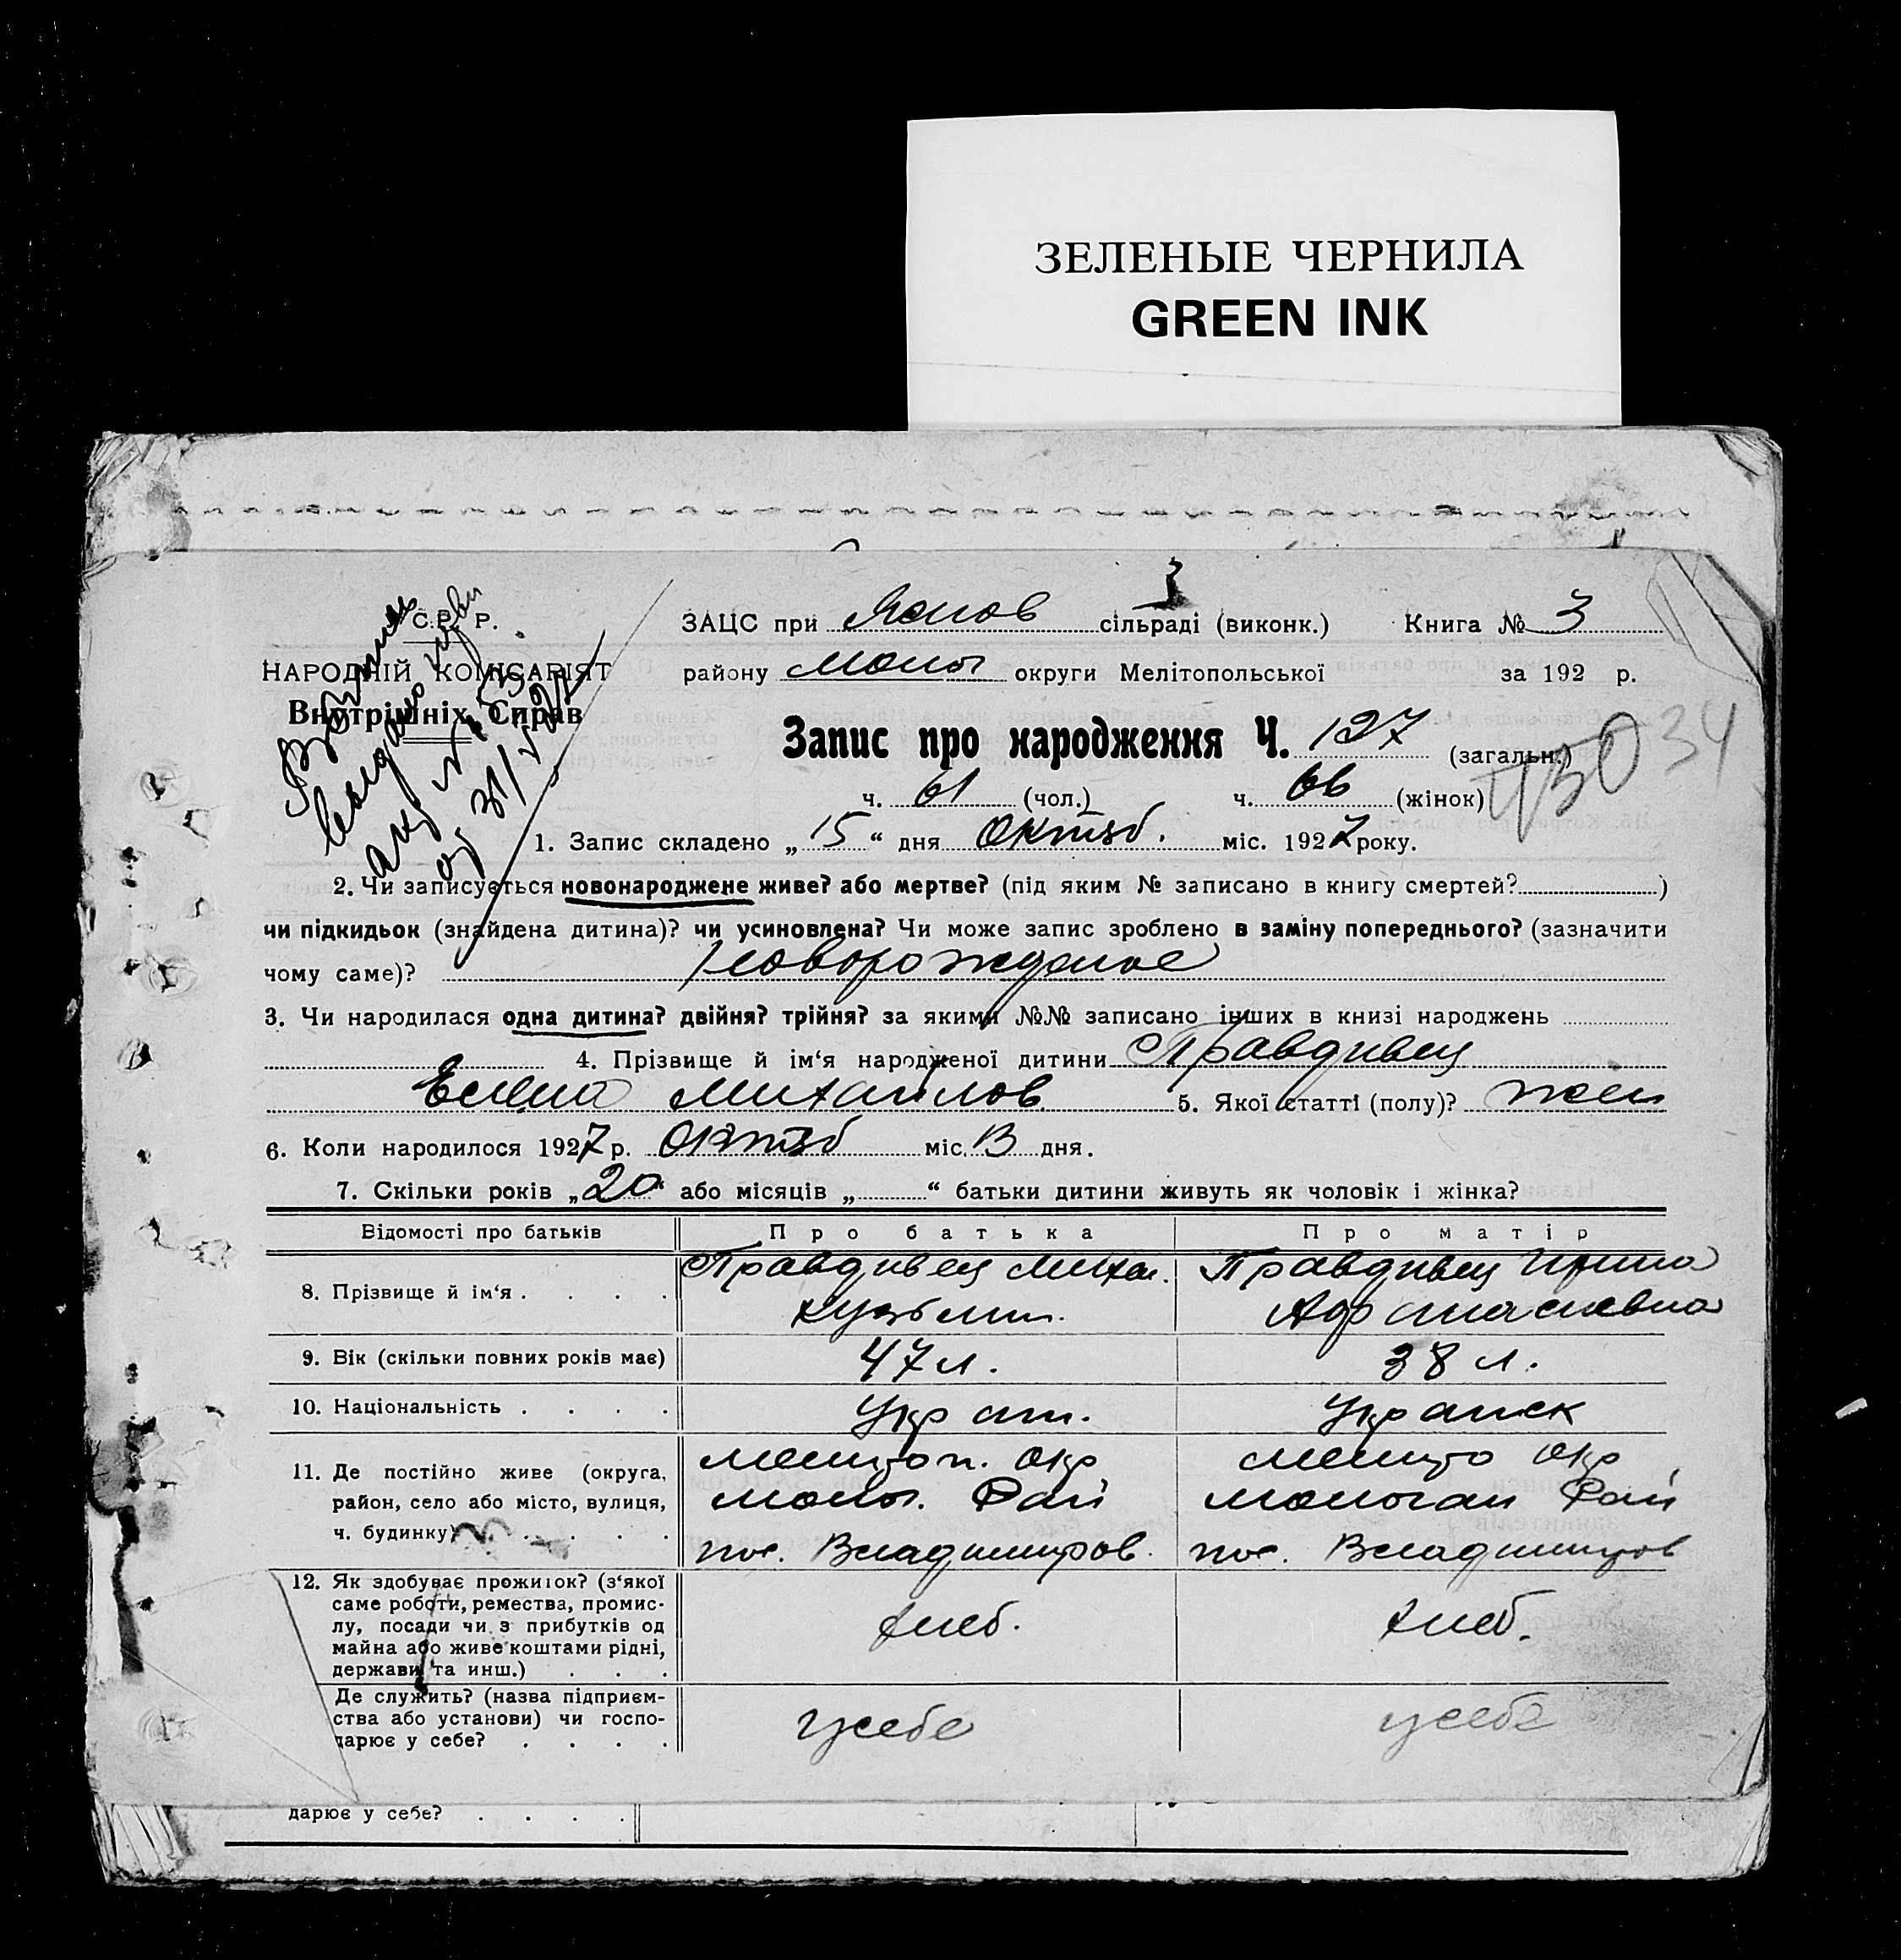 ЗЕЛЕНЫЕ ЧЕРНИЛА
GREEN INK
С.Р.Р.
НАРОДНІЙ КОМІСАРІЯТ
Внутрішніх Справ
од 31/V
3
ЗАЦС при сільраді (виконк.) Книга № 3
району округи Мелітопольської за 192 р.
Запис про народження Ч. 127 (загальн.)
34
ч. 61 (чол.) ч. 66 (жінок)
1. Запис складено „15“ дня Октяб. міс. 1927 року.
2. Чи записується новонароджене живе? або мертве? (під яким № записано в книгу смертей? )
чи підкидьок (знайдена дитина)? чи усиновлена? Чи може запис зроблено в заміну попереднього? (зазначити
чому саме)? Новорожденое
3. Чи народилася одна дитина? двійня? трійня? за якими №№ записано інших в книзі народжень
4. Прізвище й ім‘я народженої дитини Правдивец
Елена Михайлов 5. Якої статті (полу)? жен
6. Коли народилося 1927 р. Октяб міс. 13 дня.
7. Скільки років „20“ або місяців „ “ батьки дитини живуть як чоловік і жінка?
Відомості про батьків Про батька Про матір
8. Прізвище й ім‘я . . . . Правдивец Михаи. Правдивец Ирина
Кузьмич. Афанасиевна
9. Вік (скільки повних років має) 47 л. 38 л.
10. Національність . . . . Украин. Украинск
11. Де постійно живе (округа, Мелитоп. Окр Мелито Окр
район, село або місто, вулиця, Рай Рай
ч. будинку) . . . . пос. Владимиров. пос. Владимиров
12. Як здобуває прожиток? (з‘якої
саме роботи, ремества, промис-
лу, посади чи з прибутків од хлеб. хлеб.
майна або живе коштами рідні,
держави та инш.) . . .
Де служить? (назва підприєм-
ства або установи) чи госпо- у себе у себе
дарює у себе? . . . .
дарює у себе? . . . .